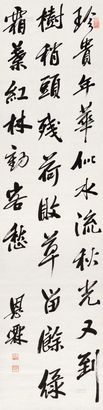 珍貴年華似水流秋光又到
樹梢頭殘荷敗草留餘綠
霜葉紅林動客愁
恩霖